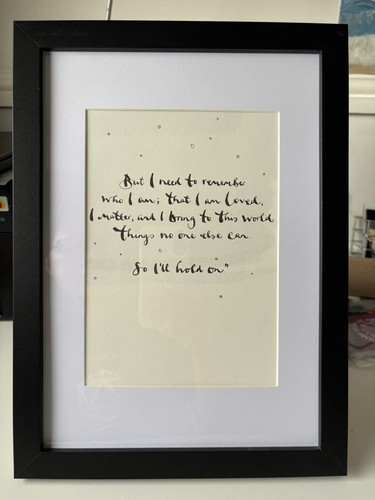 But I need to remember
who I am; that I am Loved,
I matter, and I bring to this world
things no one else can.
So I'll hold on"